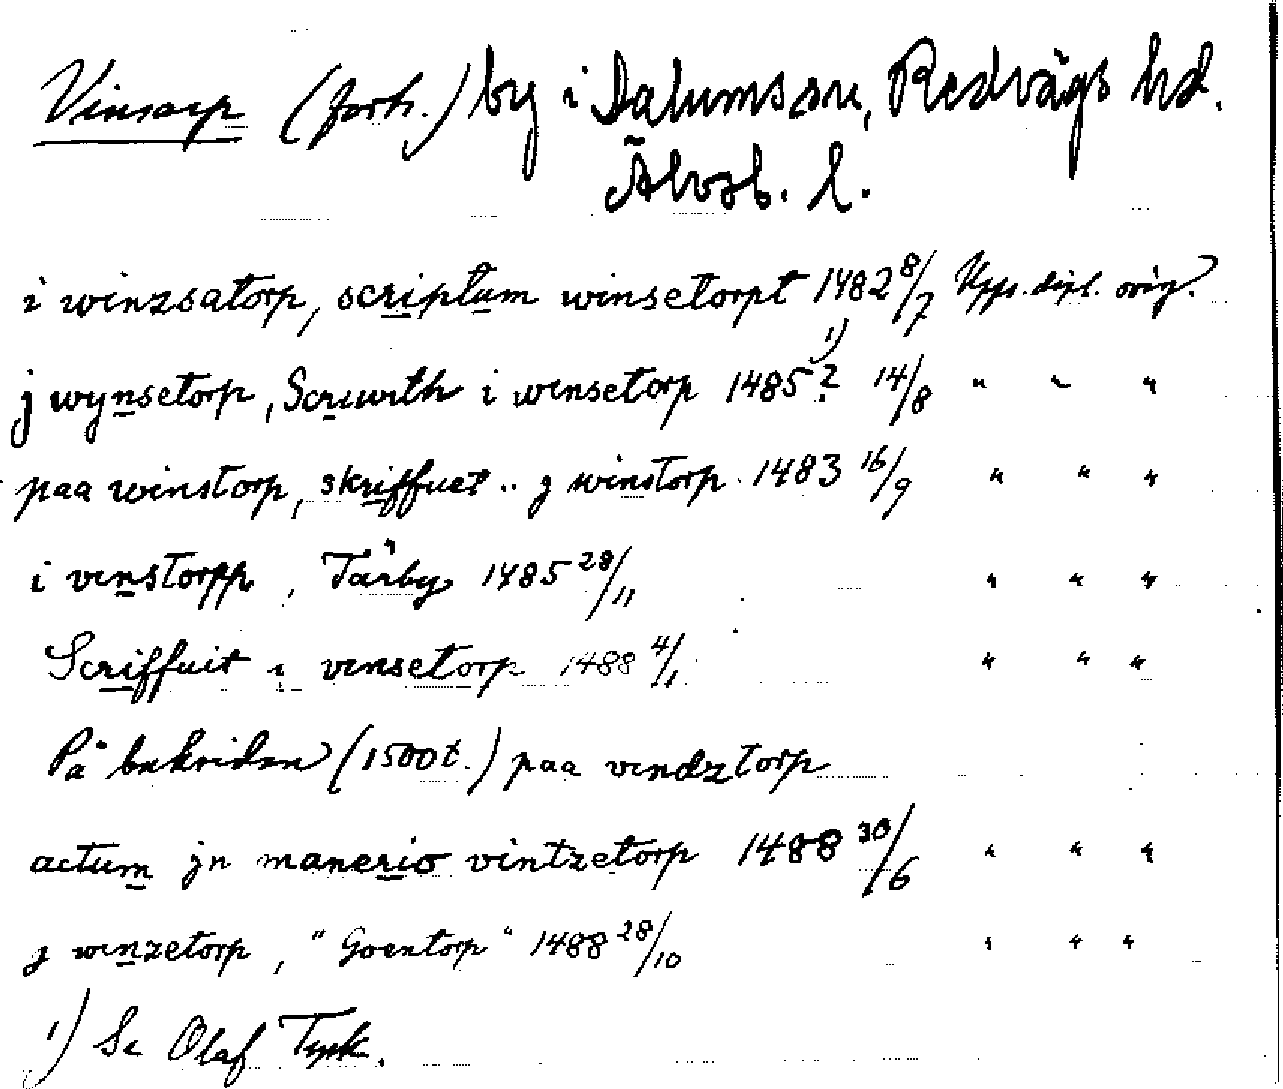 Vinsarp (forts.) by i Dalums sn, Redvägs hd.
Älvsb. l.
i winzsatorp, scriptum winsetorpt 1482 8/7 Upps. dipl. orig.
j wynsetorp, Scriwith i vinsetorp 1485? 1) 14/8 " " "
paa winstorp, skriffuet .. j winstorp 1483 16/9 " " "
i vinstorpp, Tärby 1485 28/11 " " "
Scriffuit i vinsetorp 1488 4/1 " " "
På baksidan (1500t.) paa vindztorp
actum jn manerio vintzetorp 1488 30/6 " " "
j winzetorp, "Goentorp" 1488 28/10 " " "
1) Se Olaf Tysk.